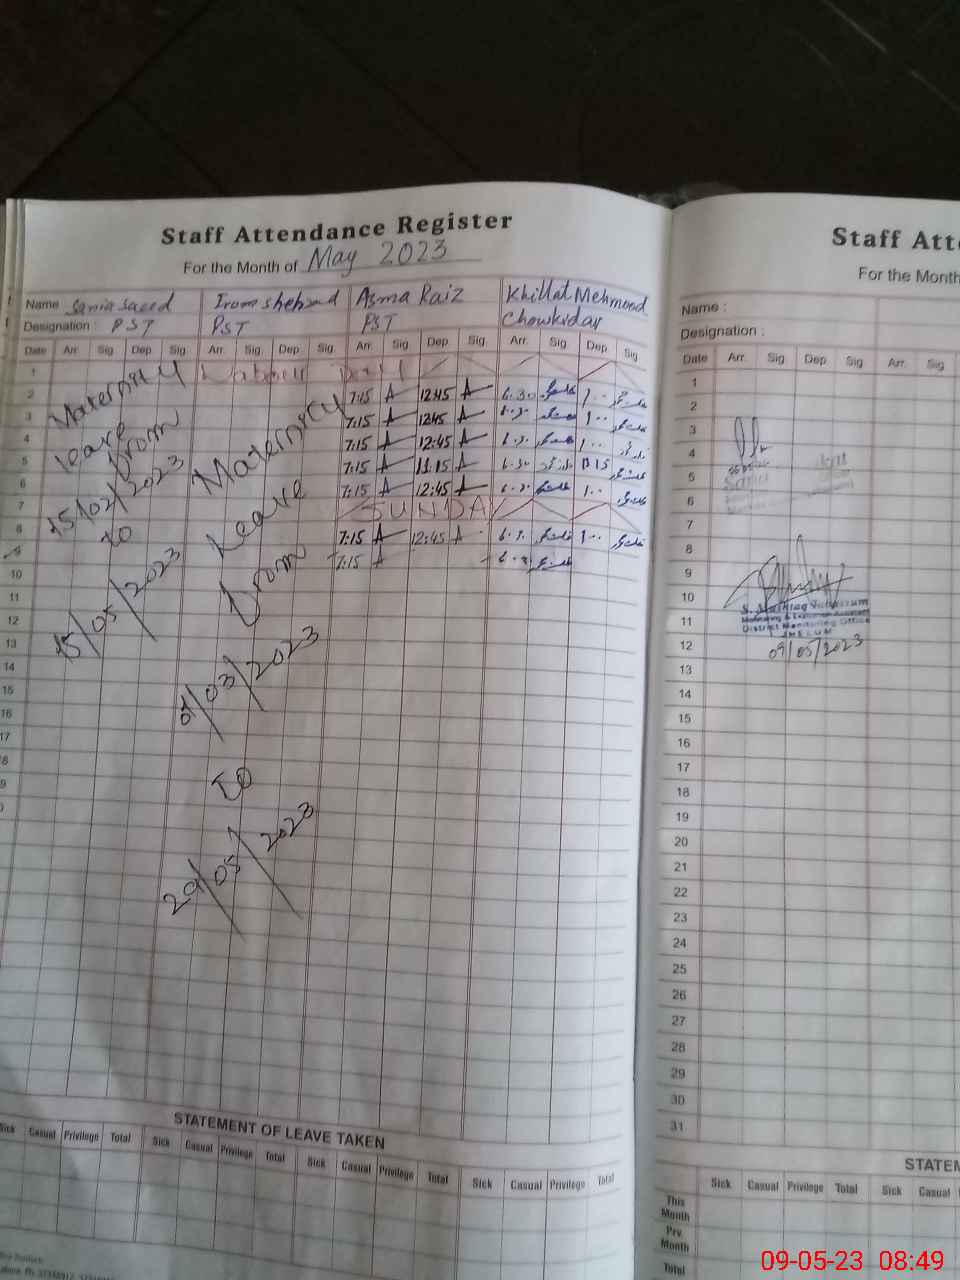 Staff Attendance Register
For the Month of May 2023
Name Sania Saeed Irom shehzad Asma Raiz Khillat Mehmood
Designation : PST PST PST Chowkidar
Date Arr. Sig Dep Sig. Arr. Sig Dep Sig. Arr. Sig. Dep. Sig. Arr. Sig. Dep. Sig
1 Labour Day
2 7:15 A 12:45 A 6.30 1..
3 7:15 A 12:45 A 6.30 1..
4 7:15 A 12:45 A 6.30 1..
5 7:15 A 11:15 A 6.30
6 7:15 A 12:45 A 6.30 1..
7 SUNDAY
8 7:15 A 12:45 A 6.30 1..
9 7:15 A 6.30
10
11
12
13
14
15
16
17
Maternity
leave
from
15/02/2023
to
15/05/2023
Maternity
Leave
from
01/03/2023
to
29/05/2023
STATEMENT OF LEAVE TAKEN
Sick Casual Privilege Total Sick Casual Privilege Total Sick Casual Privilege Total Sick Casual Privilege Total
Staff Att
For the Month
Name :
Designation :
Date Arr. Sig Dep Sig Arr. Sig
1
2
3
4
5
6
7
8
9
10
11
12
13
14
15
16
17
18
19
20
21
22
23
24
25
26
27
28
29
30
31
Monitoring & Evaluation Assistant
District Monitoring Office
JHELUM
09/05/2023
STATEM
Sick Casual Privilege Total Sick Casual
This Month
Prv. Month
Total
09-05-23 08:49